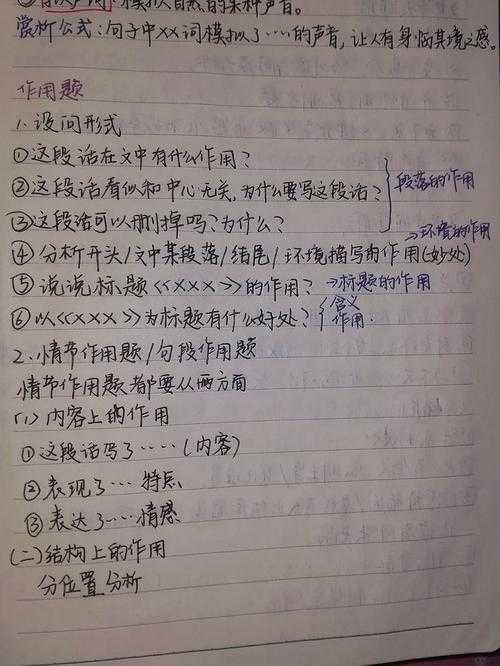 模拟自然的某种声音。
赏析公式:句子中××词模拟了……的声音,让人有身临其境之感。
作用题
1.设问形式
①这段话在文中有什么作用?
②这段话看似和中心无关,为什么要写这段话? 段落的作用
③这段话可以删掉吗?为什么? →环境的作用
④分析开头/文中某段落/结尾/环境描写的作用(妙处)
⑤说说标题<<×××>>的作用?→标题的作用
⑥以<<×××>>为标题有什么好处? 含义
作用.
2.情节作用题/句段作用题
情节作用题都要从两方面
(1)内容上的作用
①这段话写了……(内容)
②表现了…特点
③表达了……情感
(二)结构上的作用
分位置分析